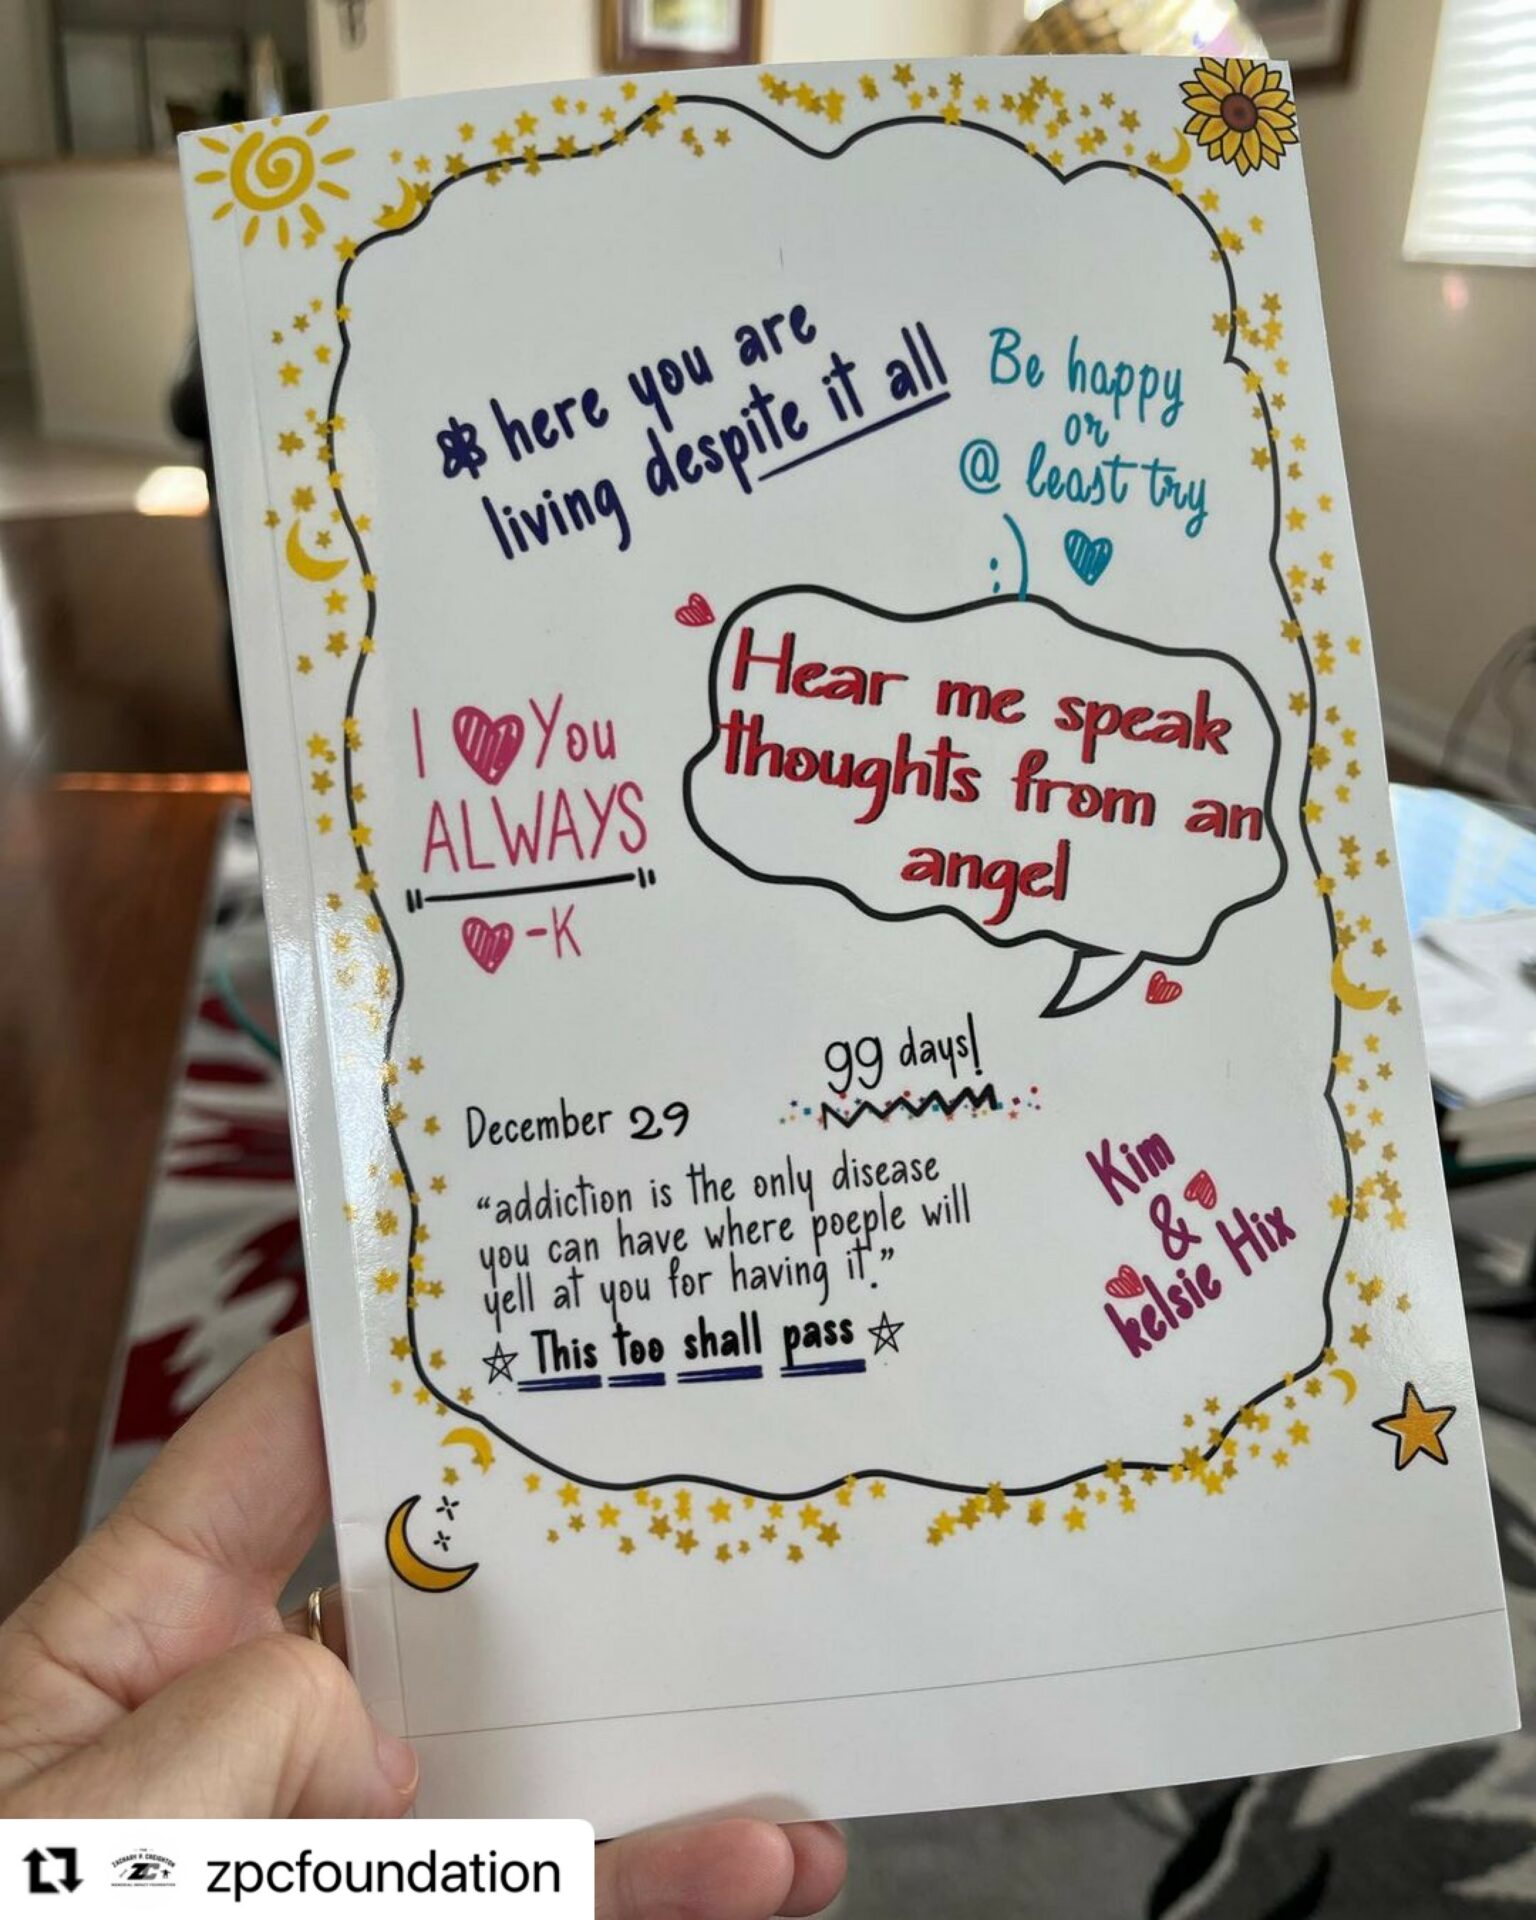 here you are
living despite it all
Be happy
or
@ least try
:)
Hear me speak
thoughts from an
angel
I You
ALWAYS
-K
99 days!
December 29
"addiction is the only disease
you can have where poeple will
yell at you for having it."
This too shall pass
Kim
&
kelsie Hix
THE
ZACHARY P. CREIGHTON
ZC
MEMORIAL IMPACT FOUNDATION
zpcfoundation